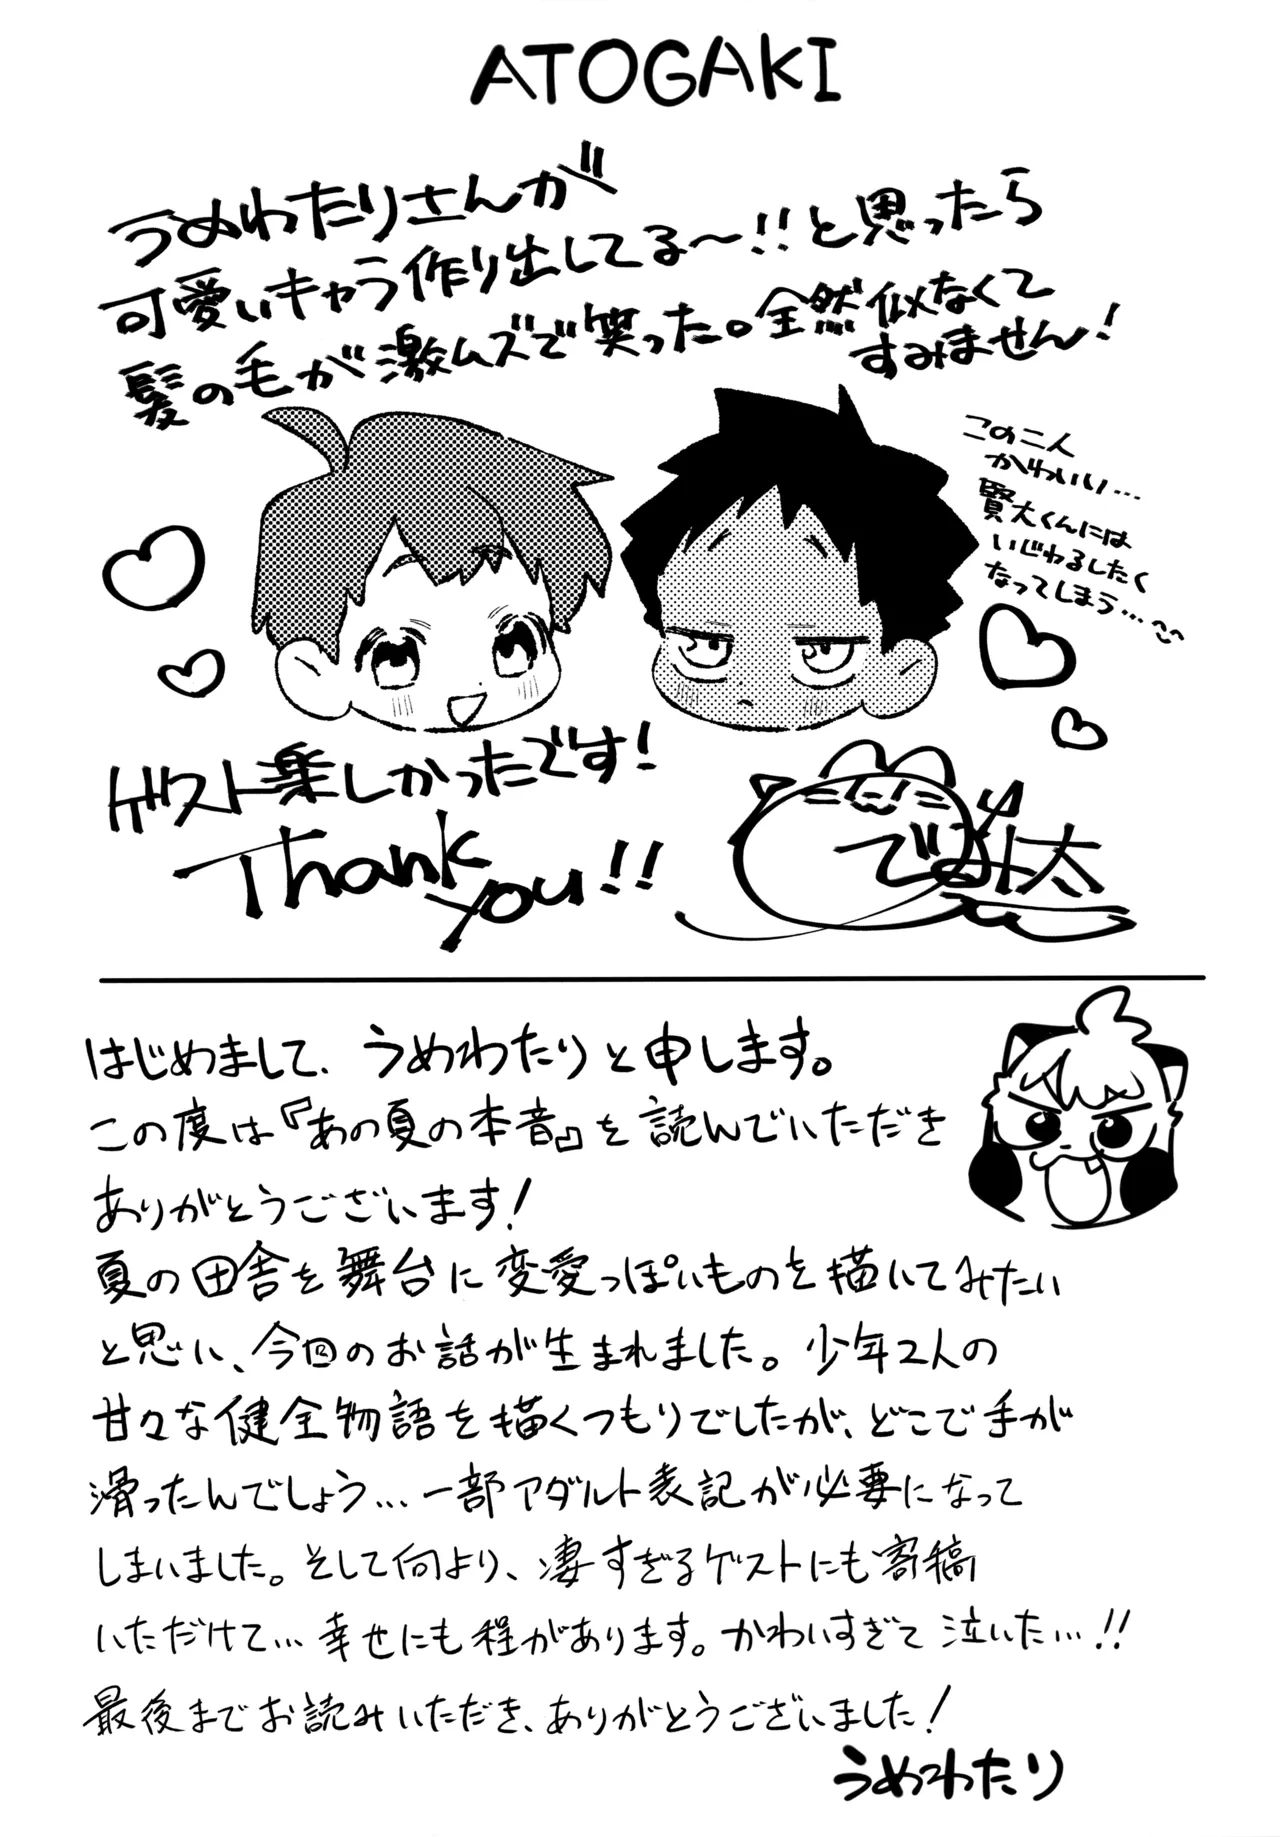 ATOGAKI
うめわたりさんが
可愛いキャラ作り出してる～!!と思ったら
髪の毛が激ムズで笑った。全然似なくて
すみません!
この二人
かわいい…
賢大くんには
いじわるしたく
なってしまう…
ゲスト楽しかったです!
Thank
you!!
はじめまして、うめわたりと申します。
この度は『あの夏の本音』を読んでいただき
ありがとうございます!
夏の田舎を舞台に恋愛っぽいものを描いてみたい
と思い、今回のお話が生まれました。少年2人の
甘々な健全物語を描くつもりでしたが、どこで手が
滑ったんでしょう…一部アダルト表記が必要になって
しまいました。そして何より、凄すぎるゲストにも寄稿
いただけて…幸せにも程があります。かわいすぎて泣いた…!!
最後までお読みいただき、ありがとうございました!
うめわたり